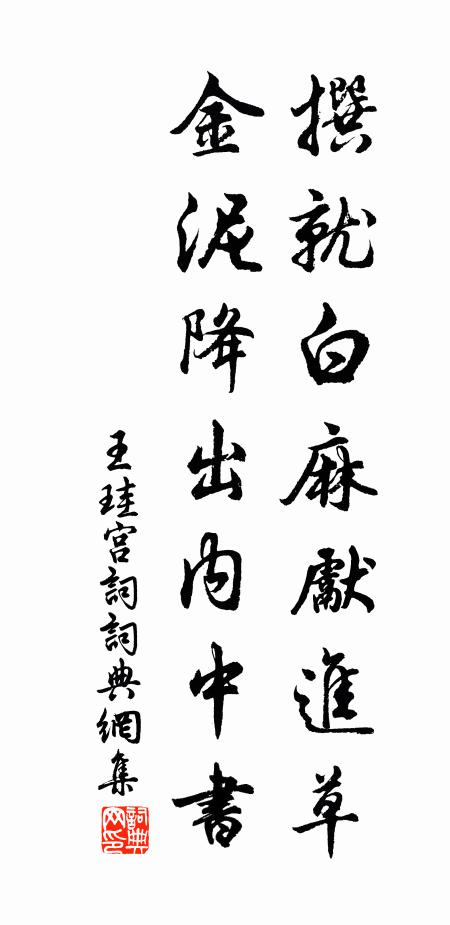 撰就白麻獻進草
金泥降出内中書
王珪宫詞詞典網集
詞典网印